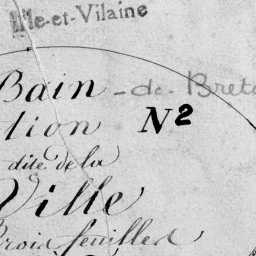 Ille-et-Vilaine
Bain - de - Breta
tion N2
dite de la
Ville
trois feuilles